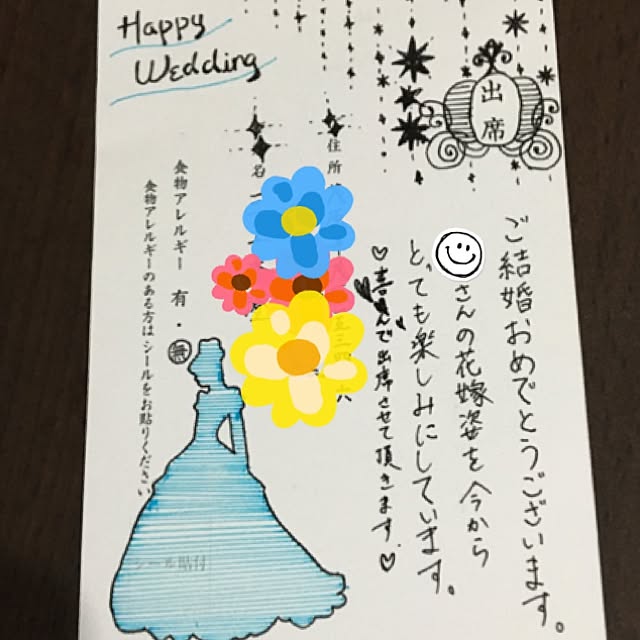 Happy
Wedding
出席
ご結婚おめでとうございます。
さんの花嫁姿を今から
とても楽しみにしています。
喜んで出席させて頂きます。
住所
名
食物アレルギー 有・無
食物アレルギーのある方はシールをお貼りください
シール貼付